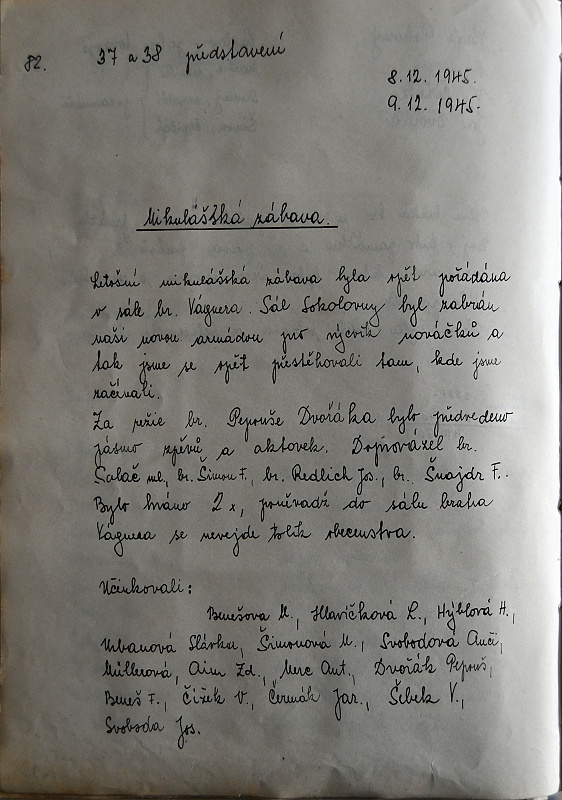 82.
37 a 38 představení
8.12.1945.
9.12.1945.
Mikulášská zábava.
Letošní mikulášská zábava byla opět pořádána
v sále br. Vágnera. Sál Sokolovny byl zabrán
naší novou armádou pro výcvik nováčků a
tak jsme se opět přestěhovali tam, kde jsme
začínali.
Za režie br. Pepouše Dvořáka bylo předvedeno
pásmo zpěvů a aktovek. Doprovázel br.
Salač ml., br. Šimon F., br. Redlich Jos., br. Šnajdr F.
Bylo hráno 2x, poněvadž do sálu bratra
Vágnera se nevejde tolik obecenstva.
Účinkovali:
Benešova M., Hlavičková L., Hýblová H.,
Urbanová Slávka, Šimonová M., Svobodová Anči,
Müllerová, Aim Zd., Merc Ant., Dvořák Pepouš,
Beneš F., Čížek V., Čermák Jar., Šibek V.,
Svoboda Jos.